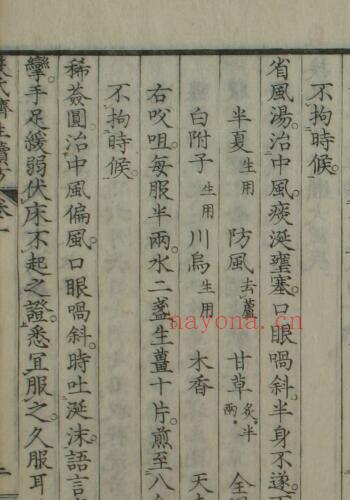 不拘時候。
省風湯治中風痰涎壅塞。口眼喎斜。半身不遂。
半夏生用 防風去蘆 甘草炙半兩。 全
白附子生用 川烏生用 木香 天
右㕮咀。每服半兩。水二盞生薑十片。煎至八
不拘時候。
稀薟圓治中風偏風。口眼喎斜。時吐涎沫。語言
攣。手足緩弱。伏床不起之證。悉冝服之。久服耳
氏濟生續方 卷一 二
nayona.cn